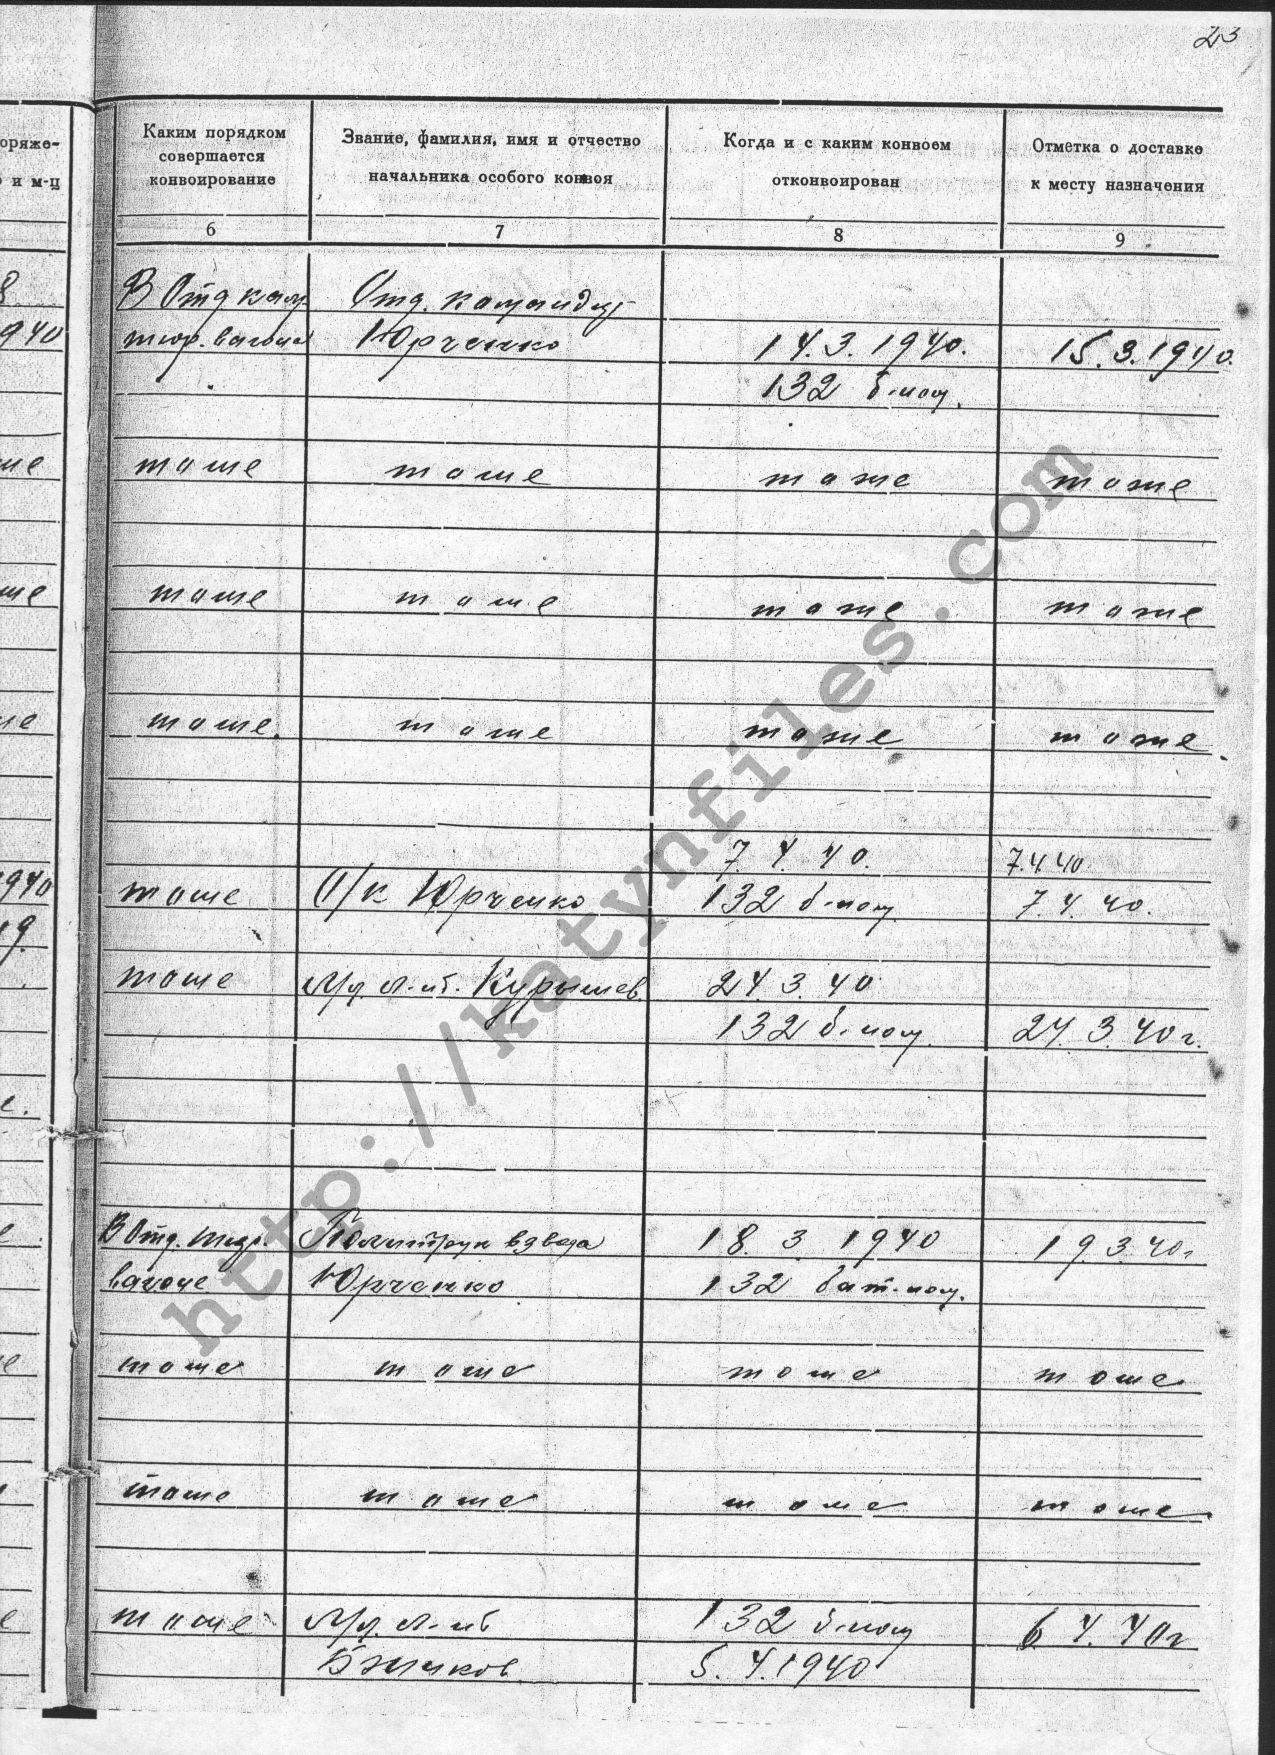 23
оряже-
и м-ц
Каким порядком
совершается
конвоирование
Звание, фамилия, имя и отчество
начальника особого конвоя
Когда и с каким конвоем
отконвоирован
Отметка о доставке
к месту назначения
6 7 8 9
В Отд кам. Отд. командир
940 тюр. вагоне Юрченко 14.3.1940. 15.3.1940.
132 б-ном.
тоже тоже тоже тоже
тоже тоже тоже тоже
тоже. тоже тоже тоже.
7.4.40. 7.4.40.
1940 тоже О/к Юрченко 132 б-ном 7.4.40.
19.
тоже Мл. л-нт. Курышев 24.3.40
132 б-ном. 24.3.40г.
В Отд. тюр. Политрук взвода 18.3 1940 19.3.40г
вагоне Юрченко 132 бат-ном.
тоже тоже тоже тоже
тоже тоже тоже тоже.
тоже Мл. л-нт 132 б-ном 6.4.40г
5.4.1940
http://katynfiles.com